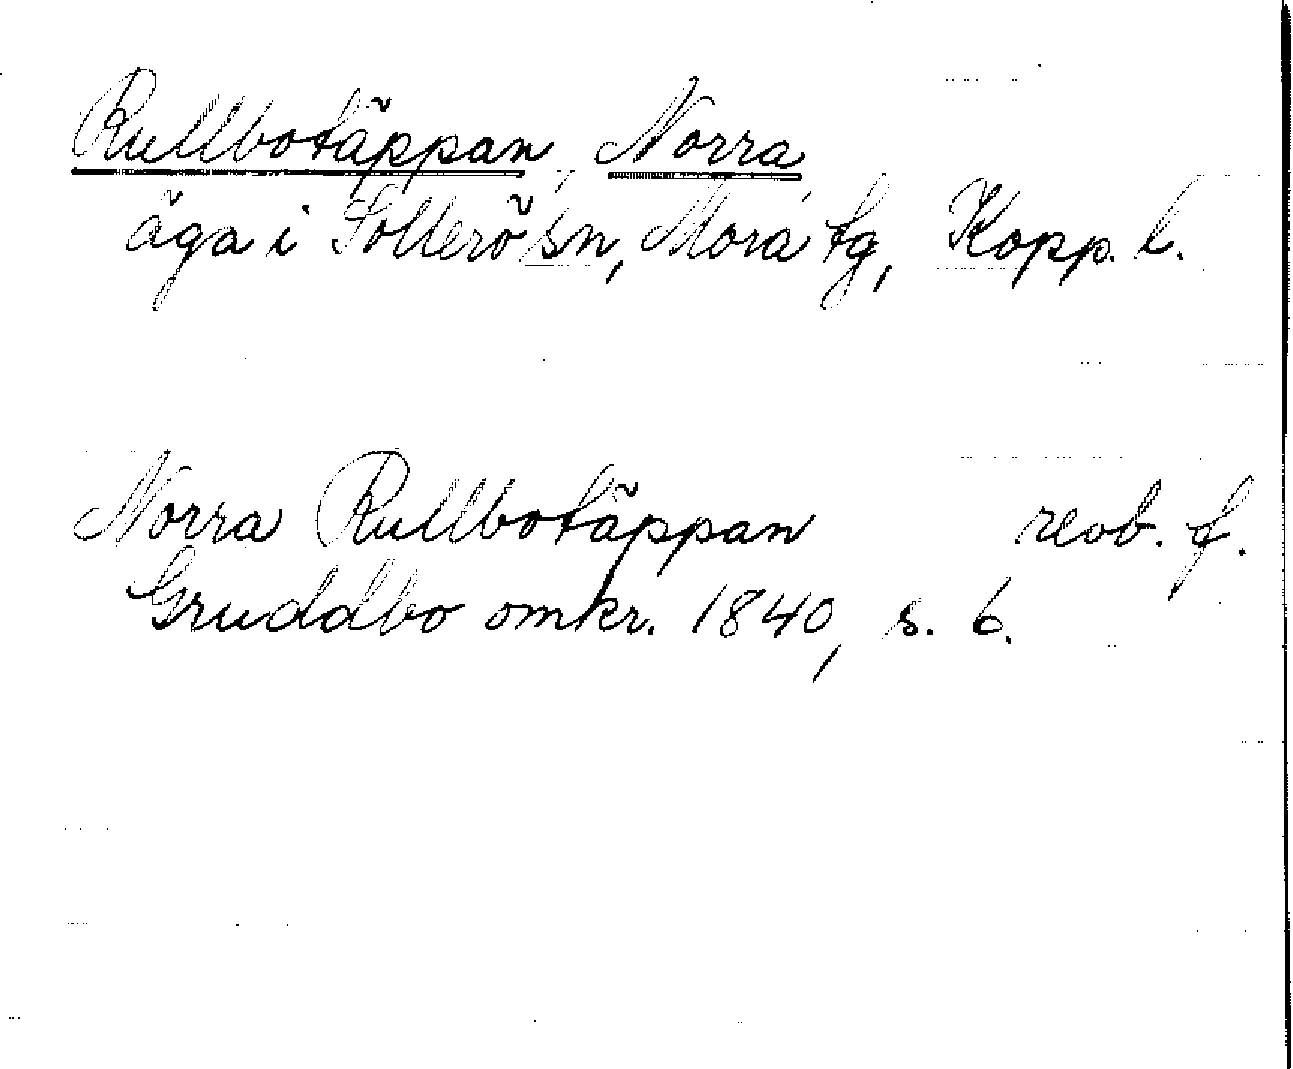 Rullbotäppan, Norra,
äga i Sollerö sn, Mora tg, Kopp. l.
Norra Rullbotäppan reob. f.
Gruddbo omkr. 1840, s. 6.